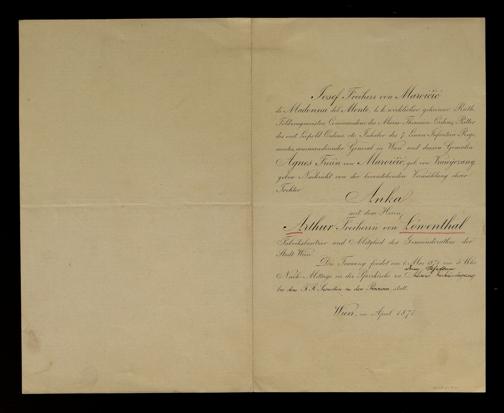 Josef Freiherr von Maroičić
di Madonna del Monte, k. k. wirklicher geheimer Rath,
Feldzeugmeister, Commandeur des Maria-Theresien-Ordens, Ritter
des öst. Leopold-Ordens etc. Inhaber des 7. Linien Infanterie Regi-
mentes, commandirender General in Wien und dessen Gemalin
Agnes Freiin von Maroičić, geb. von
geben Nachricht von der bevorstehenden Vermählung ihrer
Tochter
Anka
mit dem Herrn
Arthur Freiherrn von Löwenthal
Fabriksbesitzer und Mitglied des Gemeinderathes der
Stadt Wien.
Die Trauung findet am Mai 1871 um 5 Uhr
Nach-Mittags in der Pfarrkirche zu
bei den P. P. in der statt.
Wien, im April 1871.